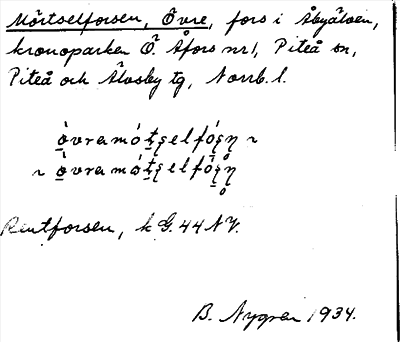 Mörtselforsen, Övre, fors i Åbyälven,
kronoparken Ö Åfors nr 1, Piteå sn,
Piteå och Älvsby tg, Norrb. l.
òvramótselfóșn ~
~ òvramótselfôșn
Rentforsen, k G. 44 NV.
B. Nygren 1934.